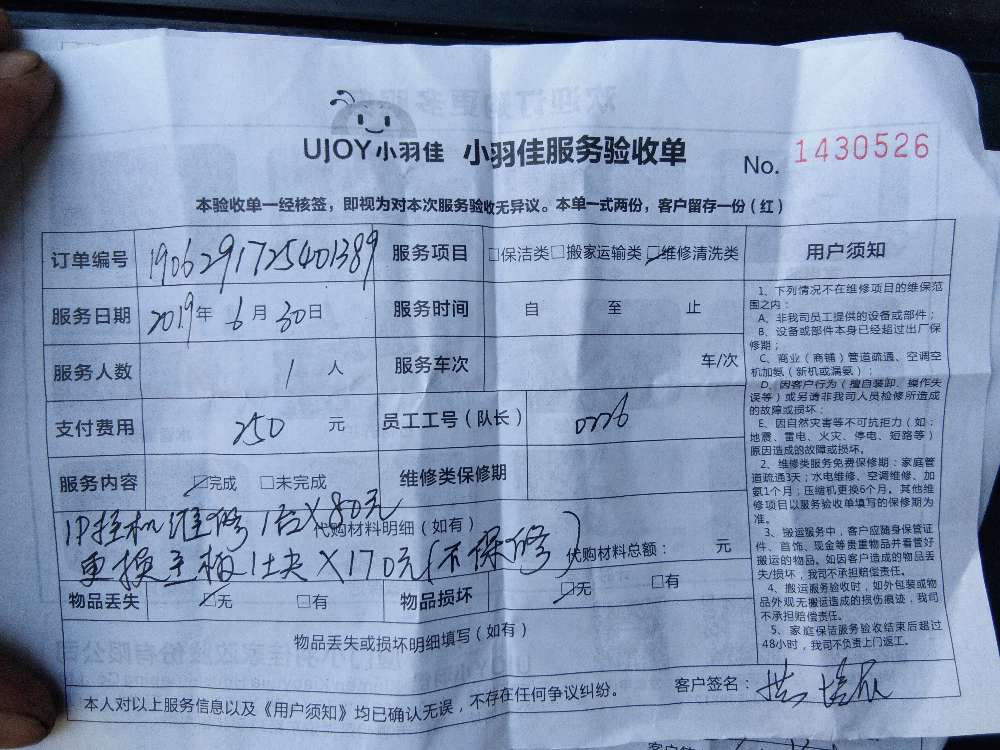 UJOY小羽佳 小羽佳服务验收单 No. 1430526
本验收单一经核签，即视为对本次服务验收无异议。本单一式两份，客户留存一份（红）
订单编号 1906291725401389 服务项目 □保洁类□搬家运输类☑维修清洗类
服务日期 2019年6月30日 服务时间 自 至 止
服务人数 1人 服务车次 车/次
支付费用 250 元 员工工号（队长） 0226
服务内容 ☑完成 □未完成 维修类保修期
1P挂机维修1台X80元
代购材料明细（如有）
更换主板1块X170元(不保修) 代购材料总额： 元
物品丢失 ☑无 □有 物品损坏 ☑无 □有
物品丢失或损坏明细填写（如有）
本人对以上服务信息以及《用户须知》均已确认无误，不存在任何争议纠纷。 客户签名：
用户须知
1、下列情况不在维修项目的维保范
围之内：
A、非我司员工提供的设备或部件；
B、设备或部件本身已经超过出厂保
修期；
C、商业（商铺）管道疏通、空调空
机加氨（新机或漏氨）；
D、因客户行为（擅自装卸、操作失
误等）或另请非我司人员检修所造成
的故障或损坏；
E、因自然灾害等不可抗拒力（如：
地震、雷电、火灾、停电、短路等）
原因造成的故障或损坏。
2、维修类服务免费保修期：家庭管
道疏通3天；水电维修、空调维修、加
氨1个月；压缩机更换6个月。其他维
修项目以服务验收单填写的保修期为
准。
3、搬运服务中，客户应随身保管证
件、首饰、现金等贵重物品并看管好
搬运的物品。如因客户造成的物品丢
失/损坏，我司不承担赔偿责任。
4、搬运服务验收时，如外包装或物
品外观无搬运造成的损伤痕迹，我司
不承担赔偿责任。
5、家庭保洁服务验收结束后超过
48小时，我司不负责上门返工。